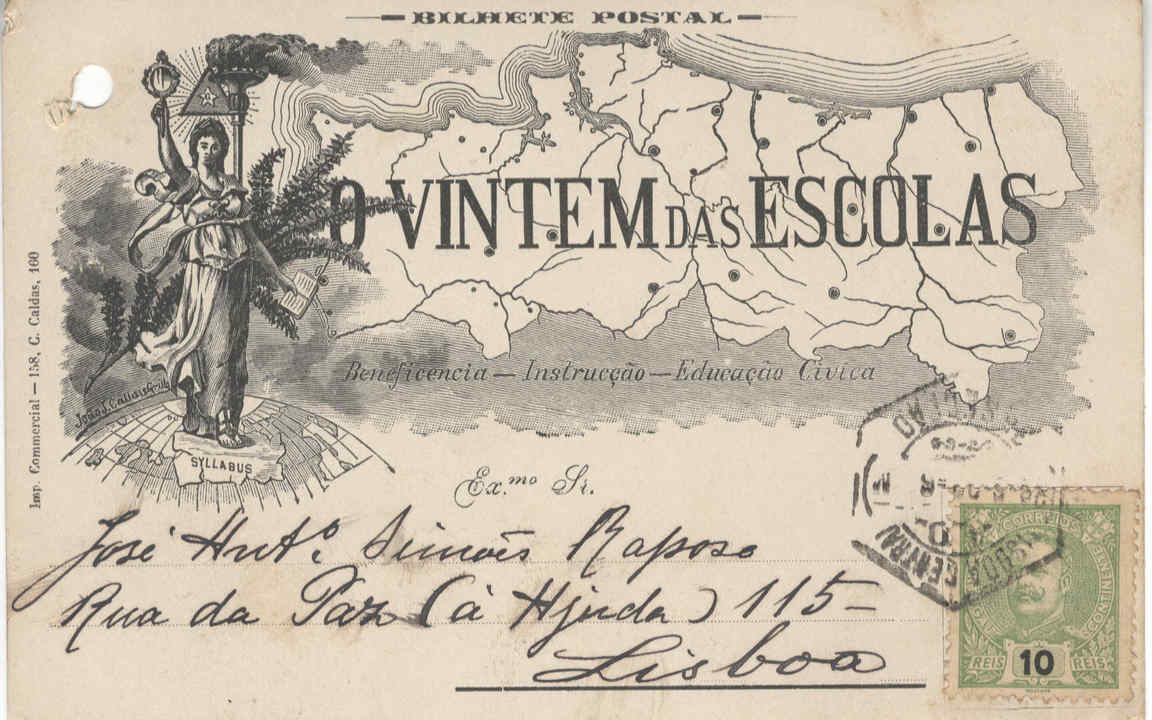 BILHETE POSTAL
O VINTEM DAS ESCOLAS
Beneficencia — Instrucção — Educação Civica
SYLLABUS
Imp. Commercial — 158, C. Caldas, 160
Ex.mo Sr.
José Antº Simões Raposo
Rua da Paz (à Ajuda) 115-
Lisboa
CENTRAL
LISBOA
CORREIOS
CONTINENTE
REIS 10 REIS